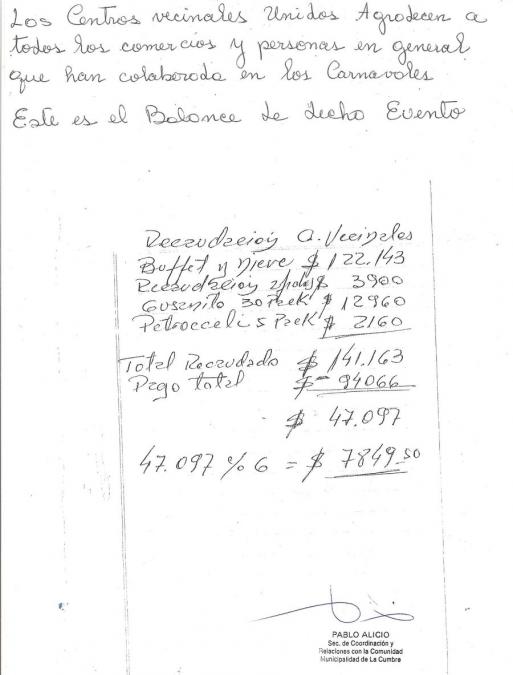 Los Centros vecinales Unidos Agradecen a
todos los comercios y personas en general
que han colaborado en los Carnavales
Este es el Balance de dicho Evento
Recaudacion C. Vecinales
Buffet y Nieve $ 122.143
Recaudacion $ 3900
Gusanito 30 Pack $ 12960
Petroccelis Pack $ 2160
Total Recaudado $ 141.163
Pago total $ - 94066
$ 47.097
47.097 % 6 = $ 7849.50
PABLO ALICIO
Sec. de Coordinación y
Relaciones con la Comunidad
Municipalidad de La Cumbre